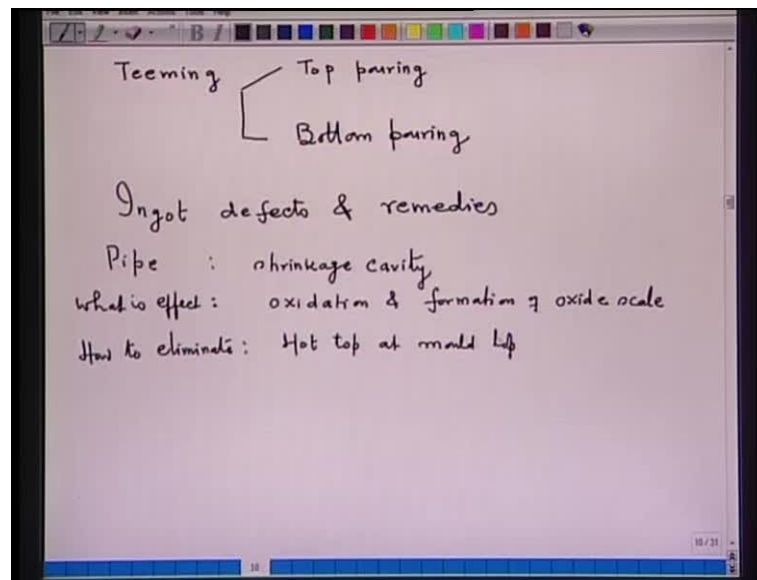 Teeming Top pouring
Bottom pouring
Ingot defects & remedies
Pipe : shrinkage cavity
What is effect : oxidation & formation of oxide scale
How to eliminate : Hot top at mould top
10/31
10